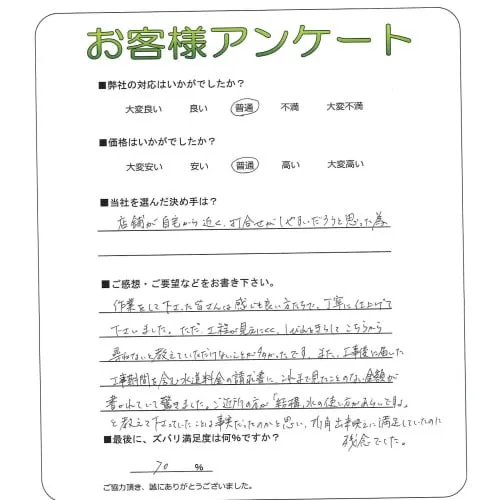 お客様アンケート
■弊社の対応はいかがでしたか?
大変良い 良い 普通 不満 大変不満
■価格はいかがでしたか?
大変安い 安い 普通 高い 大変高い
■当社を選んだ決め手は?
店舗が自宅から近く、打合せがしやすいだろうと思った為
■ご感想・ご要望などをお書き下さい。
作業をして下さった皆さんは感じも良い方たちで、丁寧に仕上げて
下さいました。ただ、工程が見えにくく、しびれをきらしてこちらから
尋ねないと教えていただけないことが多かったです。また、工事後に届いた
工事期間を含む水道料金の請求書に、これまで見たことのない金額が
書かれていて驚きました。ご近所の方が「結構、水の使い方があらいですよ」
と教えて下さっていたことは事実だったのかと思い、折角出来映えに満足していたのに
残念でした。
■最後に、ズバリ満足度は何%ですか?
70 %
ご協力頂き、誠にありがとうございました。